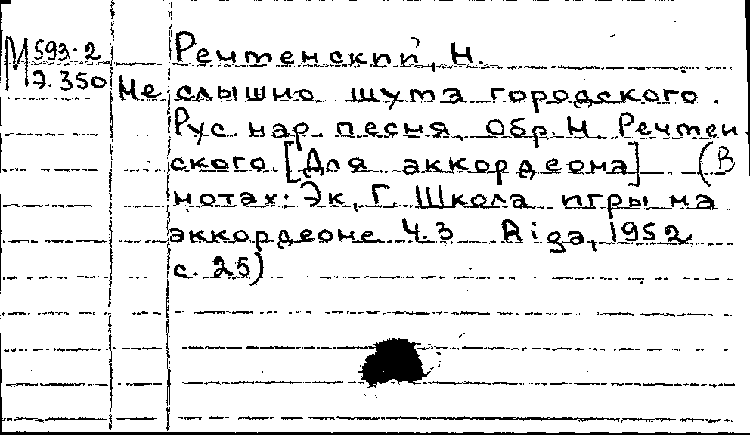 М 593-2
Э.350
Речтенский, Н.
Не слышно шума городского.
Рус. нар. песня. Обр. Н. Речтен-
ского. [Для аккордеона] (В
нотах: Эк, Г. Школа игры на
аккордеоне Ч.3 Riga, 1952
с. 25)